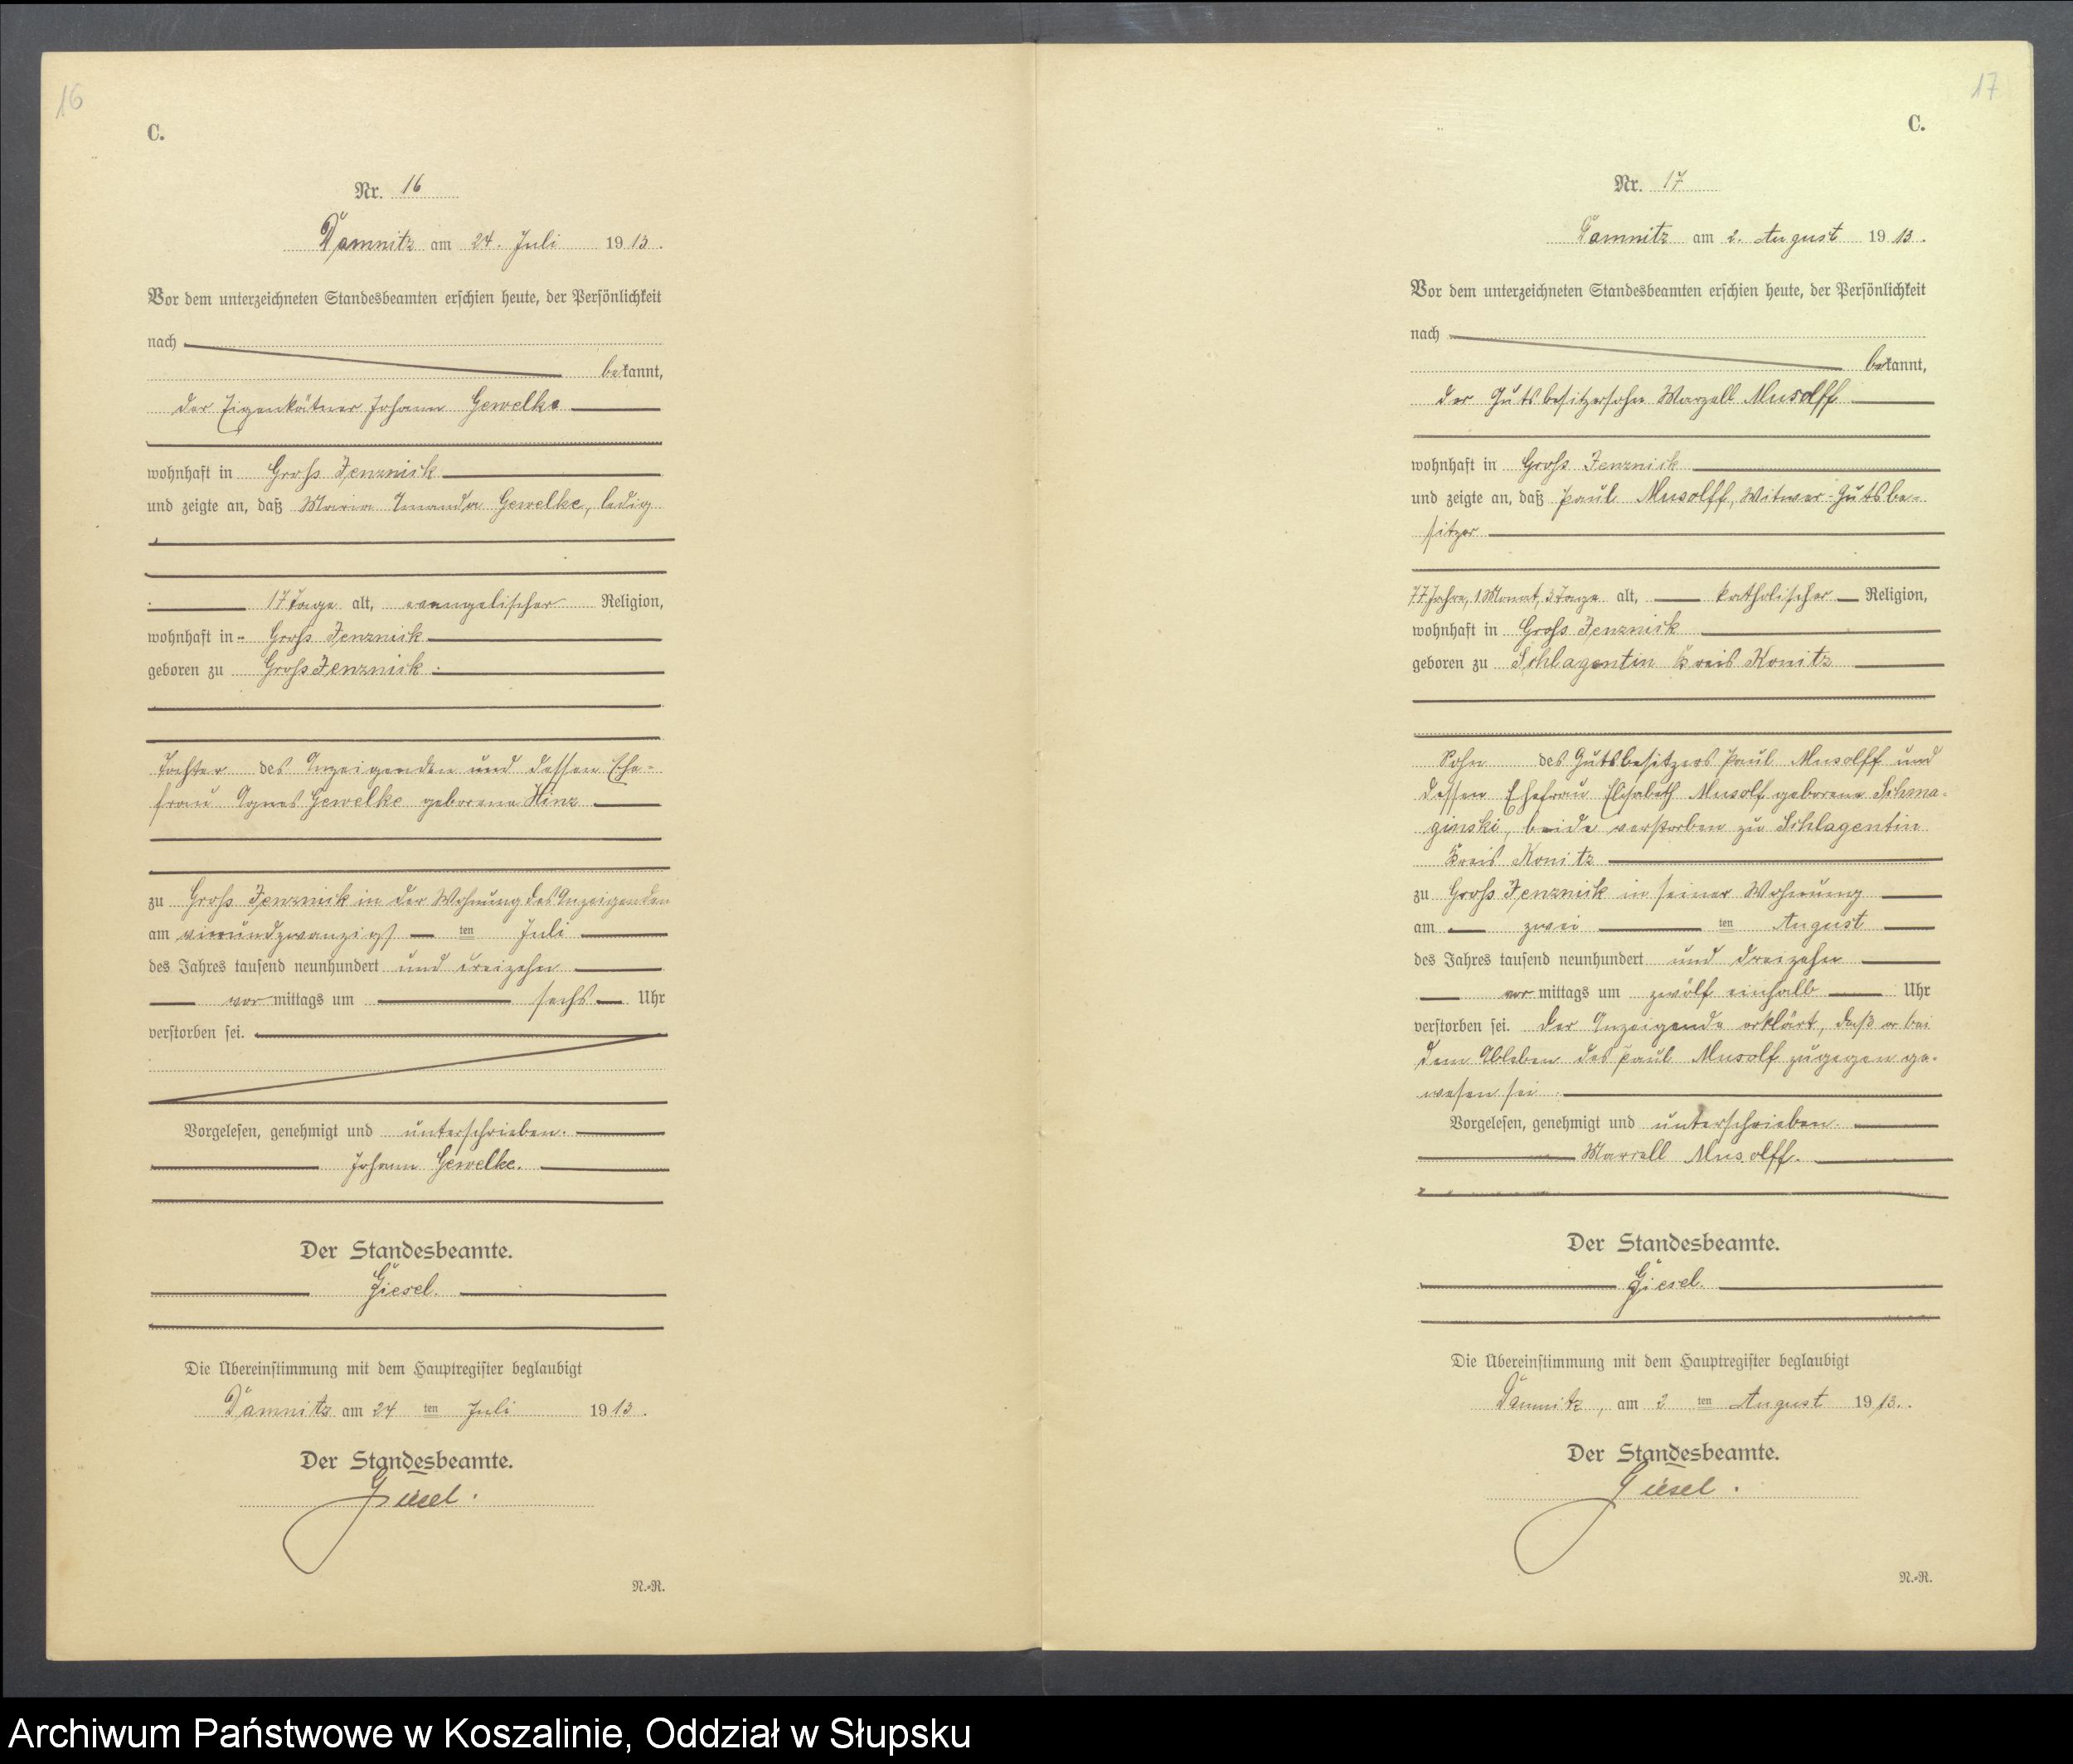 16
C.
Nr. 16
Damnitz am 24. Juli 1913.
Vor dem unterzeichneten Standesbeamten erschien heute, der Persönlichkeit
nach
bekannt,
der Eigenkätner Johann Gewelke
wohnhaft in Groß Jenznick
und zeigte an, daß Maria Amanda Gewelke, ledig
17 Tage alt, evangelischer Religion,
wohnhaft in Groß Jenznick
geboren zu Groß Jenznick
Tochter des Anzeigenden und dessen Ehe-
frau Agnes Gewelke geborene Hinz
zu Groß Jenznick in der Wohnung des Anzeigenden
am vierundzwanzigsten Juli
des Jahres tausend neunhundert und dreizehn
vormittags um sechs Uhr
verstorben sei.
Vorgelesen, genehmigt und unterschrieben.
Johann Gewelke.
Der Standesbeamte.
Giesel.
Die Übereinstimmung mit dem Hauptregister beglaubigt
Damnitz am 24 ten Juli 1913.
Der Standesbeamte.
Giesel.
N.=R.
17
C.
Nr. 17
Damnitz am 2. August 1913.
Vor dem unterzeichneten Standesbeamten erschien heute, der Persönlichkeit
nach
bekannt,
der Gutsbesitzersohn Marzell Musolff
wohnhaft in Groß Jenznick
und zeigte an, daß Paul Musolff, Witwer-Gutsbe-
sitzer
77 Jahre, 1 Monat, 3 Tage alt, katholischer Religion,
wohnhaft in Groß Jenznick
geboren zu Schlagentin Kreis Konitz
Sohn des Gutsbesitzers Paul Musolff und
dessen Ehefrau Elisabeth Musolf geborene Schma-
ginski, beide verstorben zu Schlagentin
Kreis Konitz
zu Groß Jenznick in seiner Wohnung
am zwei ten August
des Jahres tausend neunhundert und dreizehn
vormittags um zwölf einhalb Uhr
verstorben sei. Der Anzeigende erklärt, daß er bei
dem Ableben des Paul Musolf zugegen ge-
wesen sei.
Vorgelesen, genehmigt und unterschrieben.
Marzell Musolff.
Der Standesbeamte.
Giesel.
Die Übereinstimmung mit dem Hauptregister beglaubigt
Damnitz, am 2 ten August 1913.
Der Standesbeamte.
Giesel.
N.=R.
Archiwum Państwowe w Koszalinie, Oddział w Słupsku